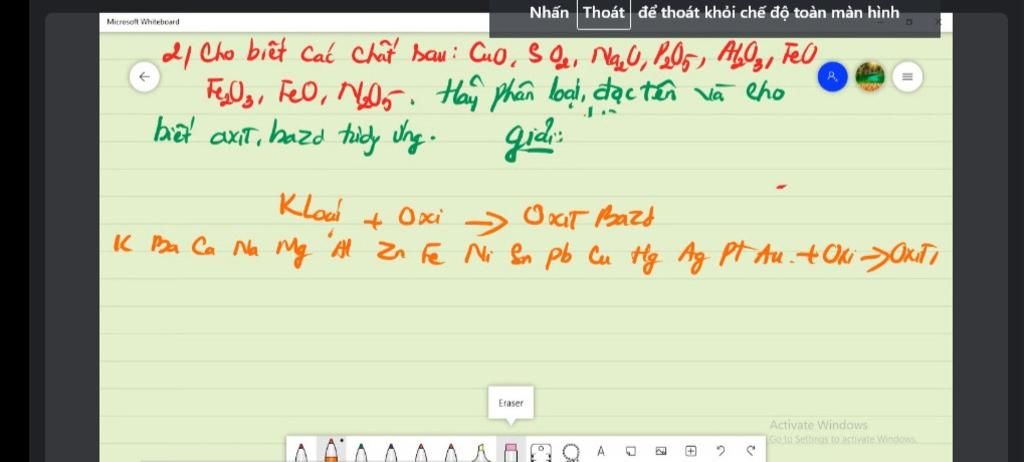 Nhấn Thoát để thoát khỏi chế độ toàn màn hình
Microsoft Whiteboard
2/ Cho biết các chất sau: CuO, SO2, Na2O, P2O5, Al2O3, FeO
Fe2O3, FeO, N2O5. Hãy phân loại, đọc tên và cho
biết axit, bazơ tương ứng. giải:
KLoại + Oxi → Oxit Bazơ
K Ba Ca Na Mg Al Zn Fe Ni Sn Pb Cu Hg Ag Pt Au + Oxi → Oxit
Eraser
Activate Windows
Go to Settings to activate Windows.